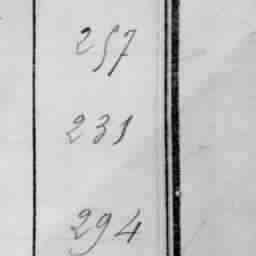 257
231
294